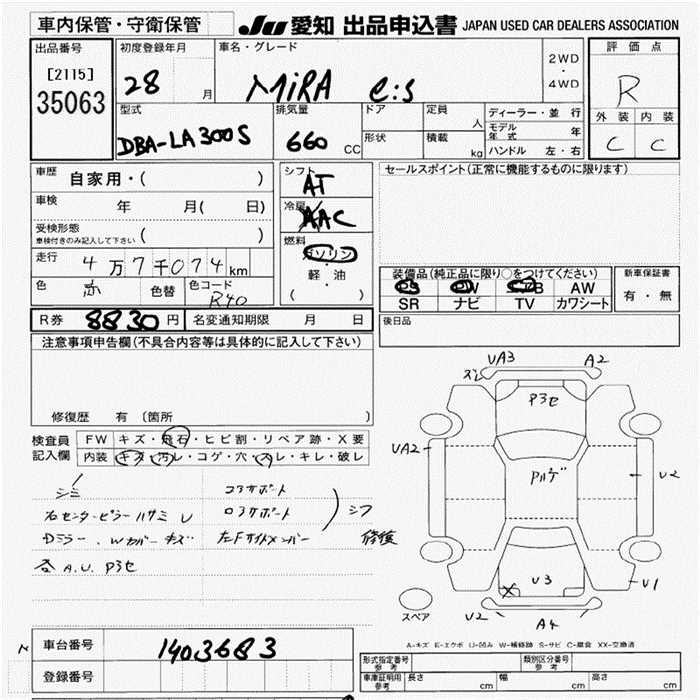 車内保管・守衛保管
JU 愛知 出品申込書 JAPAN USED CAR DEALERS ASSOCIATION
出品番号
[2115]
35063
初度登録年月
28 月
車名・グレード
MiRA e:s
2WD
・
4WD
評価点
R
外装 内装
C C
型式
DBA-LA300S
排気量
660 CC
ドア
形状
定員
人
積載
kg
ディーラー・並行
モデル年式 年
ハンドル 左・右
車歴
自家用・( )
車検 年 月( 日)
受検形態
車検付きのみ記入して下さい ( )
走行 4万7千074km
色 赤 色替 色コード R40
シフト
AT
冷房
AAC
燃料
ガソリン
・
軽・油
( )
セールスポイント(正常に機能するものに限ります)
装備品(純正品に限り○をつけてください)
PS PW AB AW
SR ナビ TV カワシート
新車保証書
有・無
R券 8830円 名変通知期限 月 日
後日品
注意事項申告欄(不具合内容等は具体的に記入して下さい)
修復歴 有 〔箇所
検査員
記入欄
FW キズ・飛石・ヒビ割・リペア跡・X要
内装 キズ・汚レ・コゲ・穴・スレ・キレ・破レ
シミ
右センターピラーハサミ U
Dミラー、Wカバーキズ
各A.U.P3セ
コアサポート
ロアサポート
左Fサイドメンバー
シフ
修復
UA3 A2
ズレ
P3セ
UA2
U2
U3
U1
スペア
U2 A4
A-キズ E-エクボ U-凹み W-補修跡 S-サビ C-腐食 XX-交換済
車台番号 1403683
登録番号
形式指定番号
参考
類別区分番号
参考
車庫証明用
参考
長さ cm 幅 cm 高さ cm